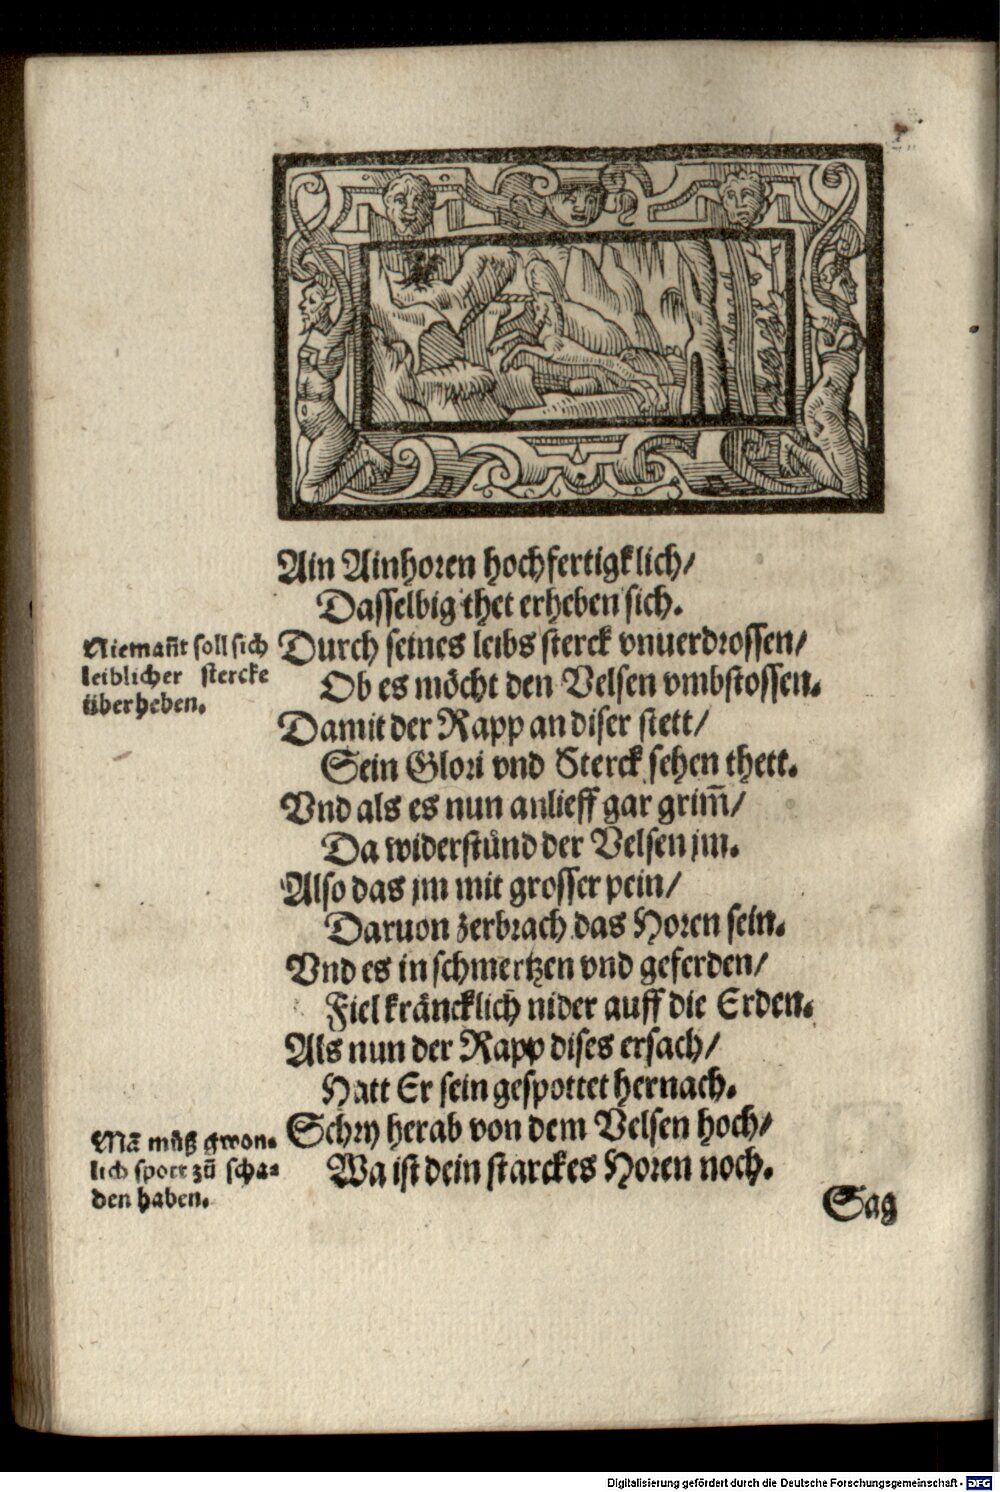 Ain Ainhoren hochfertigklich/
Dasselbig thet erheben sich.
Niemañt soll sich
leiblicher stercke
überheben.
Durch seines leibs sterck vnuerdrossen/
Ob es möcht den Velsen vmbstossen.
Damit der Rapp an diser stett/
Sein Glori vnd Sterck sehen thett.
Vnd als es nun anlieff gar grim̃/
Da widerstůnd der Velsen jm.
Also das jm mit grosser pein/
Daruon zerbrach das Horen sein.
Vnd es in schmertzen vnd geferden/
Fiel kräncklich nider auff die Erden.
Als nun der Rapp dises ersach/
Hatt Er sein gespottet hernach.
Mã můß gwon-
lich spott zů scha-
den haben.
Schry herab von dem Velsen hoch/
Wa ist dein starckes Horen noch.
Sag
Digitalisierung gefördert durch die Deutsche Forschungsgemeinschaft - DFG